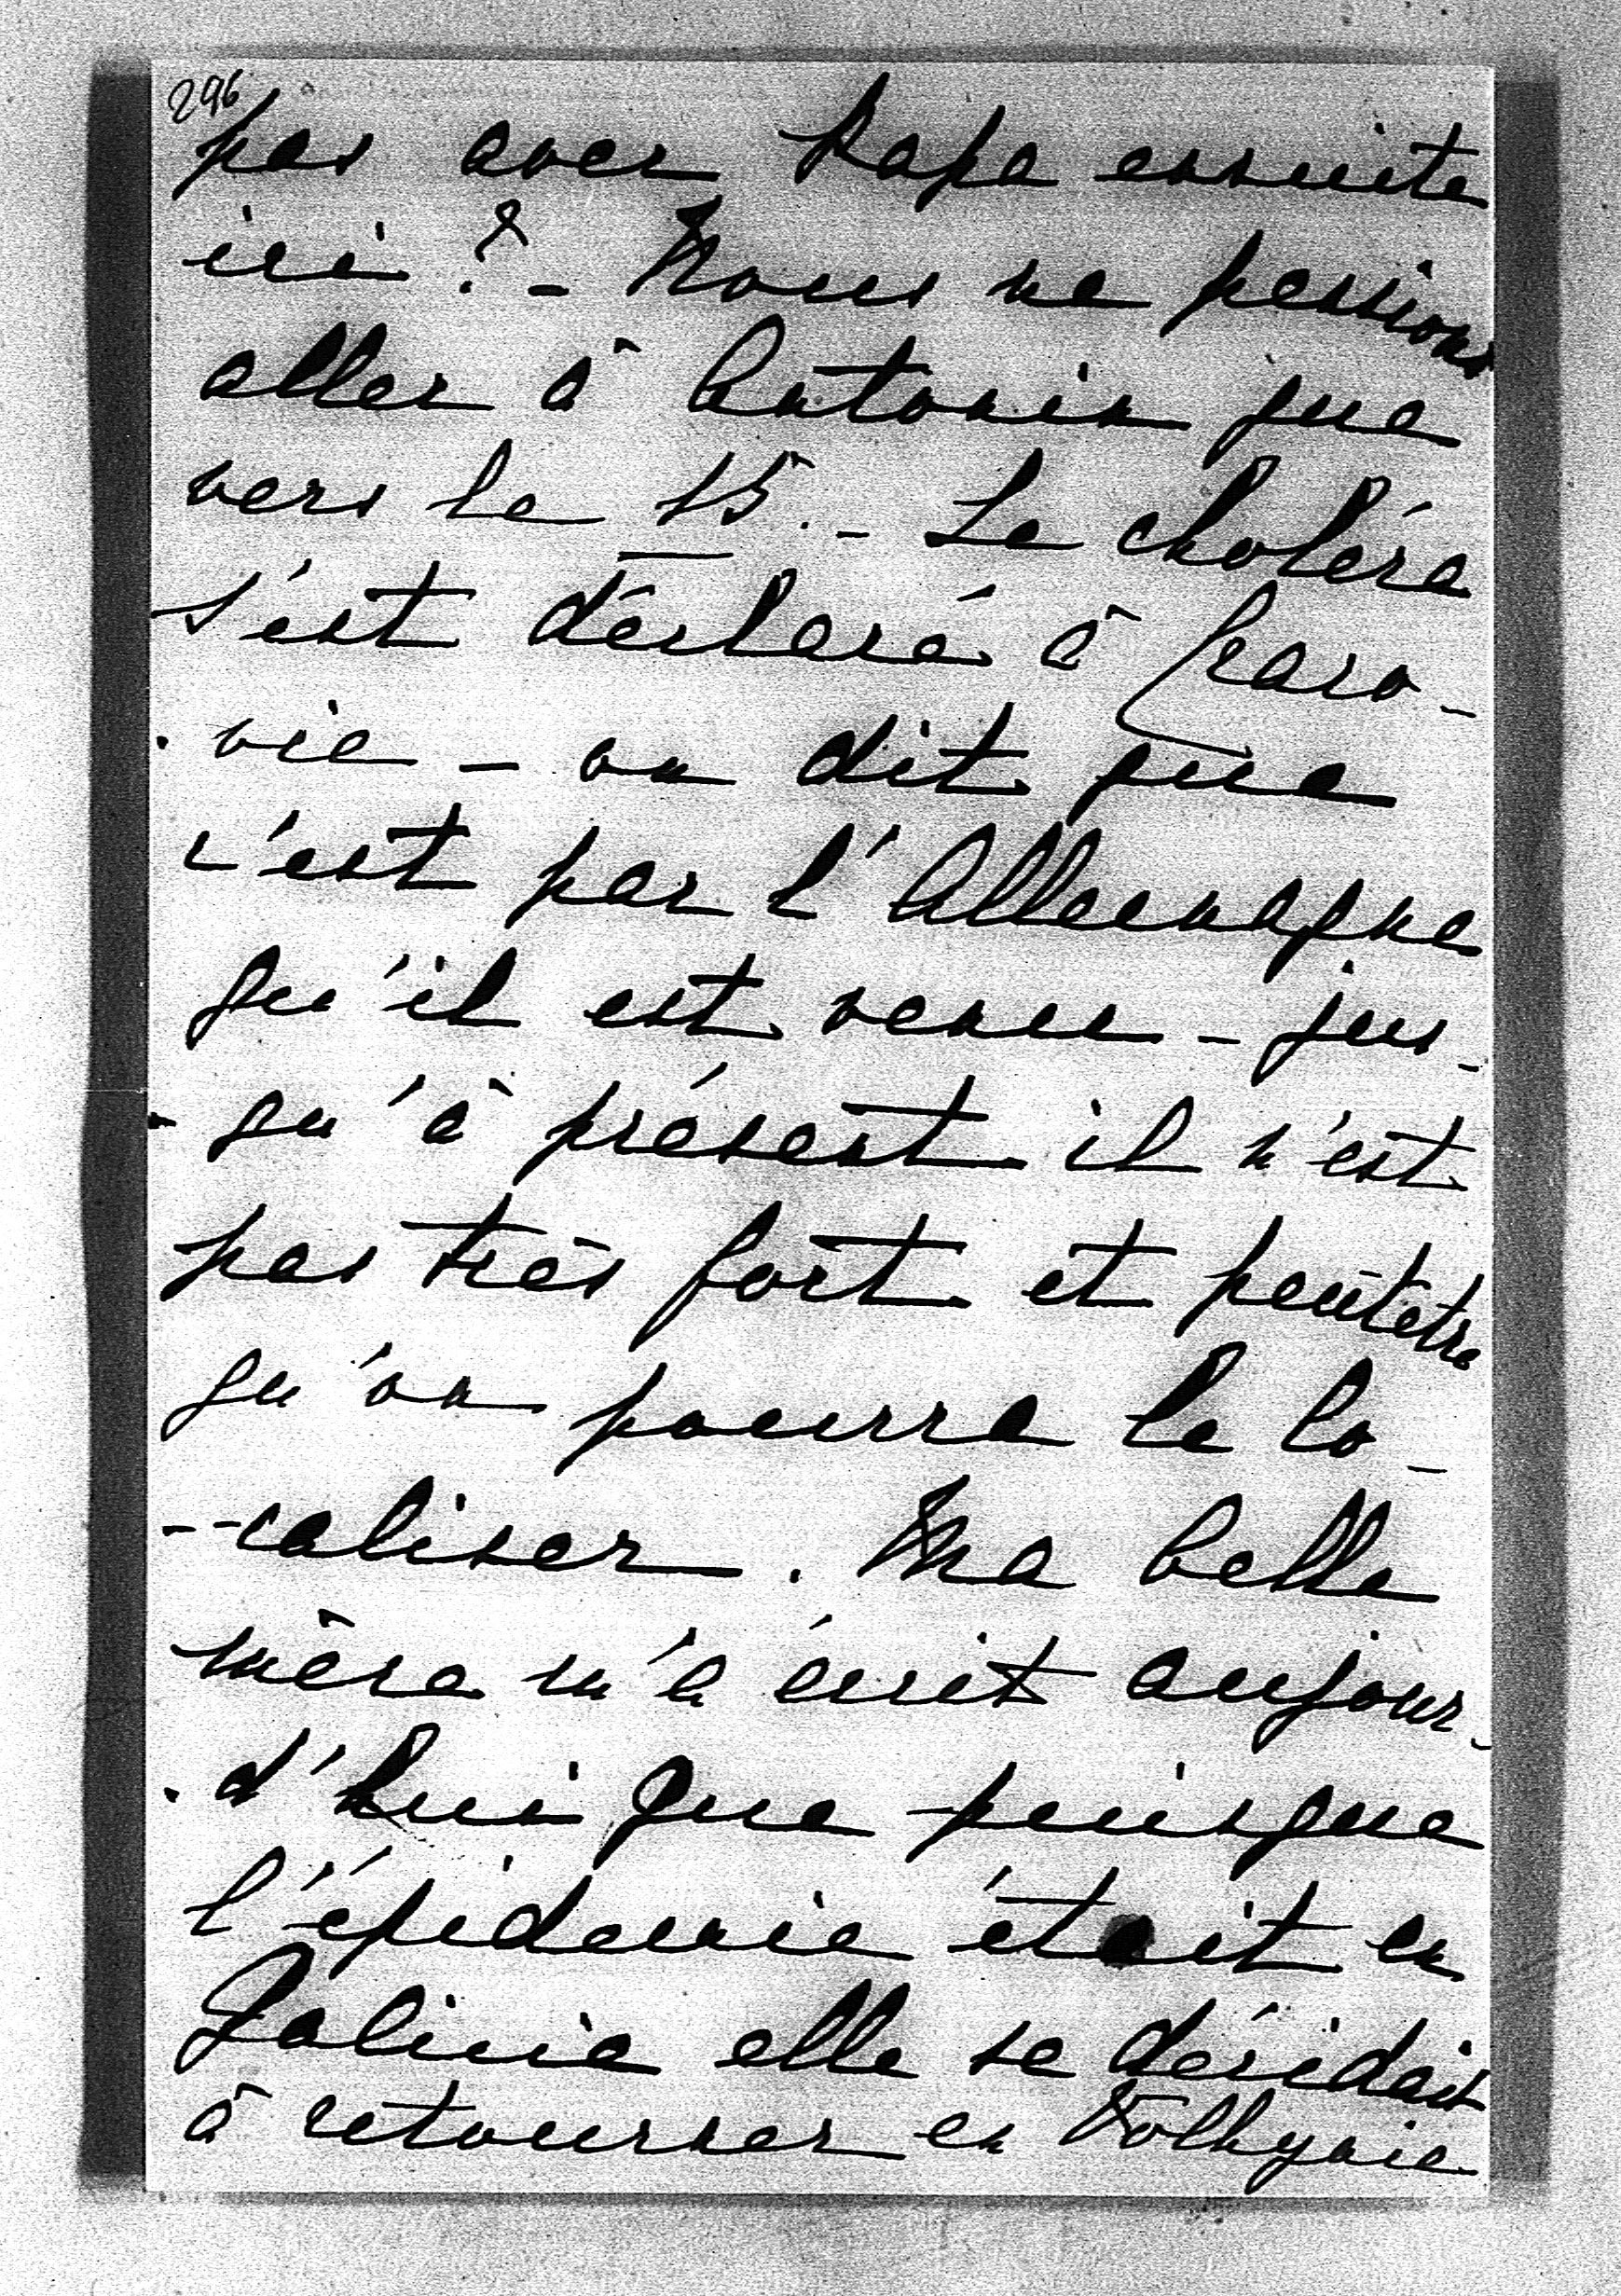 296
pas avec Papa ensuite
ici ? - Nous ne pensions
aller à Antonin que
vers le 15. - Le choléra
s'est déclaré à Craco-
- vie - on dit que
c'est par l'Allemagne
qu'il est venu - jus-
- qu'à présent il n'est
pas très fort et peutetre
qu'on pourra le lo-
- caliser. Ma belle
mère m'a écrit aujour-
- d'hui que puisque
l'épidemie était en
Galicie elle se décidait
à retourner en Volhynie